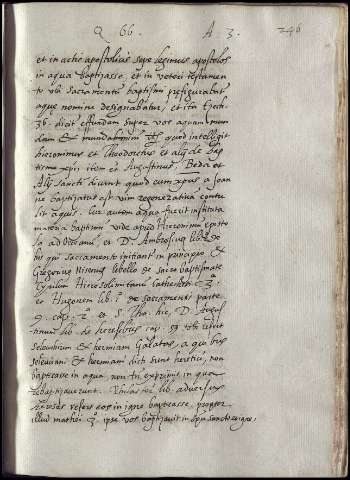 Q 66. A 3. 246
et in actis apostolicis sepe legimus apostolos
in aqua baptizasse, et in veteri testamen
to ubi sacramentum baptismi prefigurabat
aque nomine designabatur, et ita Ezech.
36. dicit effundam super vos aquam mun
dam et mundabimini quod intelligit
hieronimus et Theodoretus et alij de bap
tismo xpi, item et Augustinus, Beda et
Alij sancti dicunt quod cum xpus a Joan
ne baptizatus est vim regenerativa contu
lit aquis. Cur autem aqua fuerit instituta
materia baptismi vide apud Hieronimu episto
la ad Oceanu et D. Ambrosiu lib. de
his qui sacramento initiant in principio &
Gregoriu Nisenu libello de sacro baptismate
Cyrillum Hierosolimitanu cathechesi 3.
et Hugonem lib. de sacramentis parte
9. cap. 2. et S. Tho. hic, D. Augus
tinum lib. de heresibus cap. 59 ubi
Seleucianu & hermiam Galatas, a quibus
seleuciani & hermiani dicti sunt heretici, non
baptizare in aqua, non tn exprimit in qua
re baptizaverunt. lib. adversus
hereses refert eos in igne baptizasse, propter
illud mathei 3. ipse vos baptizavit in spu sancto et igne,